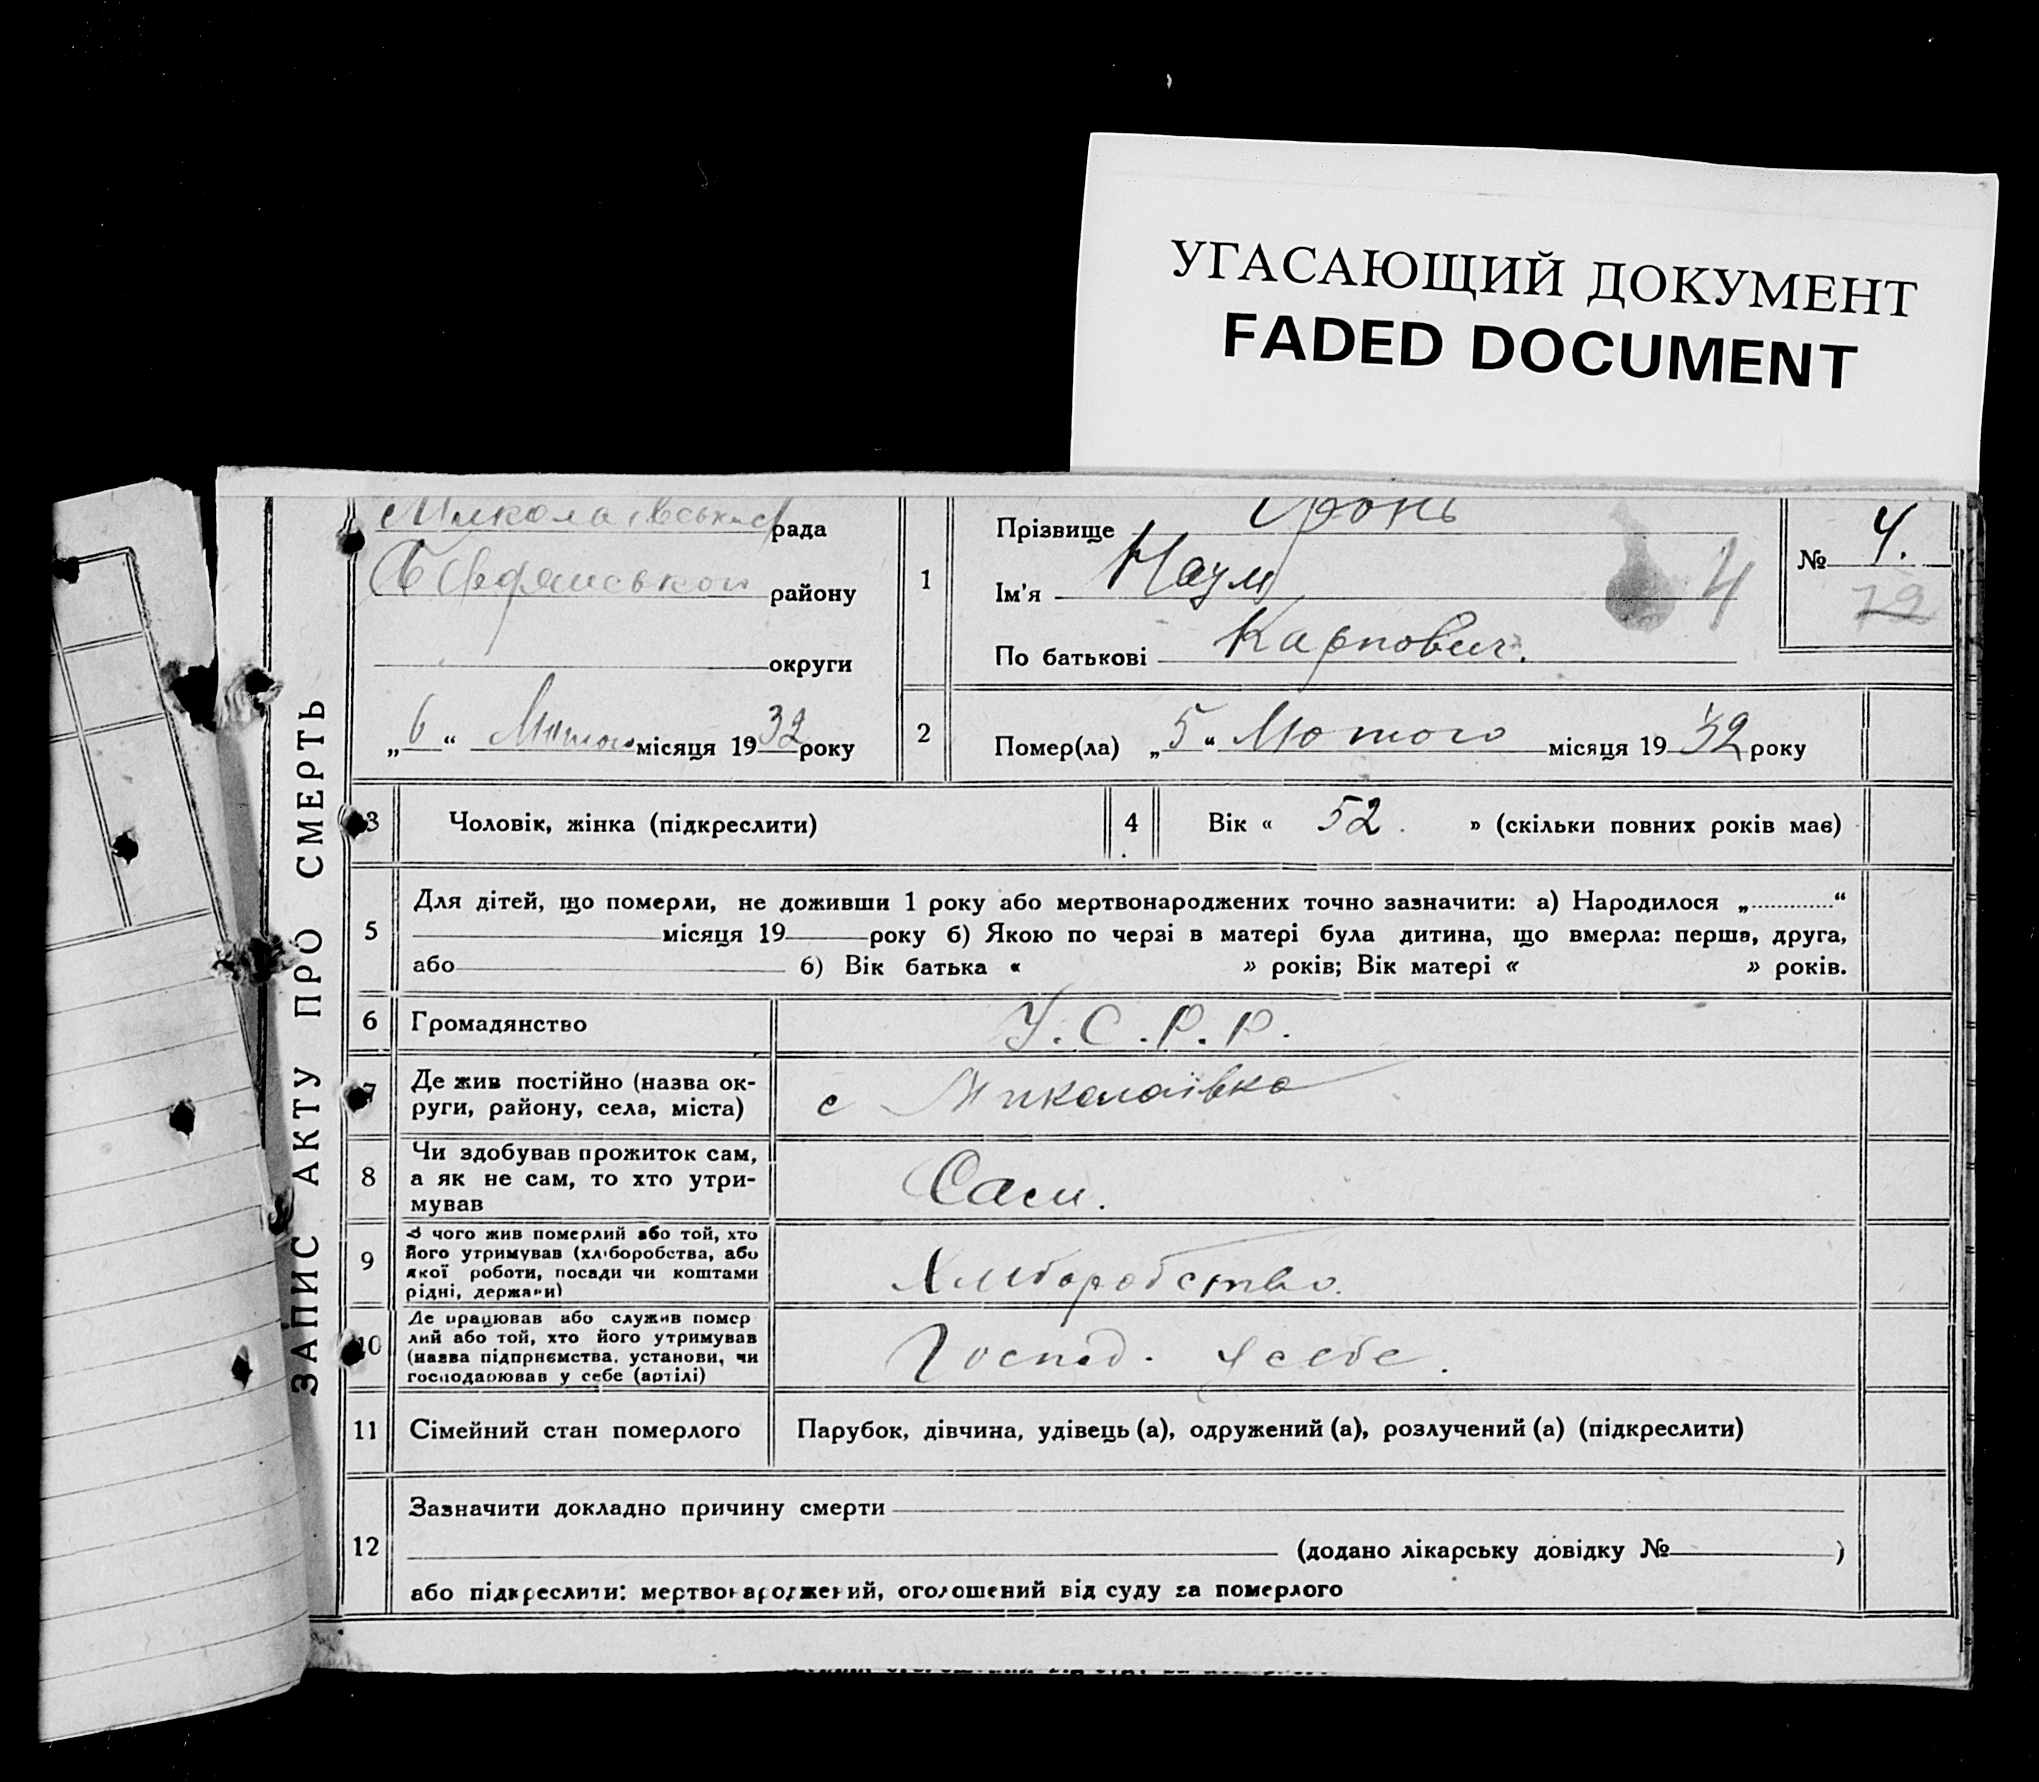 УГАСАЮЩИЙ ДОКУМЕНТ
FADED DOCUMENT
ЗАПИС АКТУ ПРО СМЕРТЬ
Миколаївська рада
району
округи
„6“ Лютого місяця 1932 року
1
Прізвище
Ім'я Наум
4
По батькові Карпович.
№ 4.
72
2
Помер(ла) „5“ Лютого місяця 1932 року
3
Чоловік, жінка (підкреслити)
4
Вік « 52. » (скільки повних років має)
5
Для дітей, що померли, не доживши 1 року або мертвонароджених точно зазначити: а) Народилося „............“
місяця 19 року б) Якою по черзі в матері була дитина, що вмерла: перша, друга,
або б) Вік батька « » років; Вік матері « » років.
6
Громадянство
У.С.Р.Р.
7
Де жив постійно (назва ок-
руги, району, села, міста)
с Миколаївка
8
Чи здобував прожиток сам,
а як не сам, то хто утри-
мував
Сам.
9
З чого жив померлий або той, хто
його утримував (хліборобства, або
якої роботи, посади чи коштами
рідні, держави)
Хліборобство.
10
Де працював або служив помер
лий або той, хто його утримував
(назва підприємства, установи, чи
господарював у себе (артілі)
Господ. у себе.
11
Сімейний стан померлого
Парубок, дівчина, удівець (а), одружений (а), розлучений (а) (підкреслити)
12
Зазначити докладно причину смерти
(додано лікарську довідку № )
або підкреслити: мертвонароджений, оголошений від суду за померлого